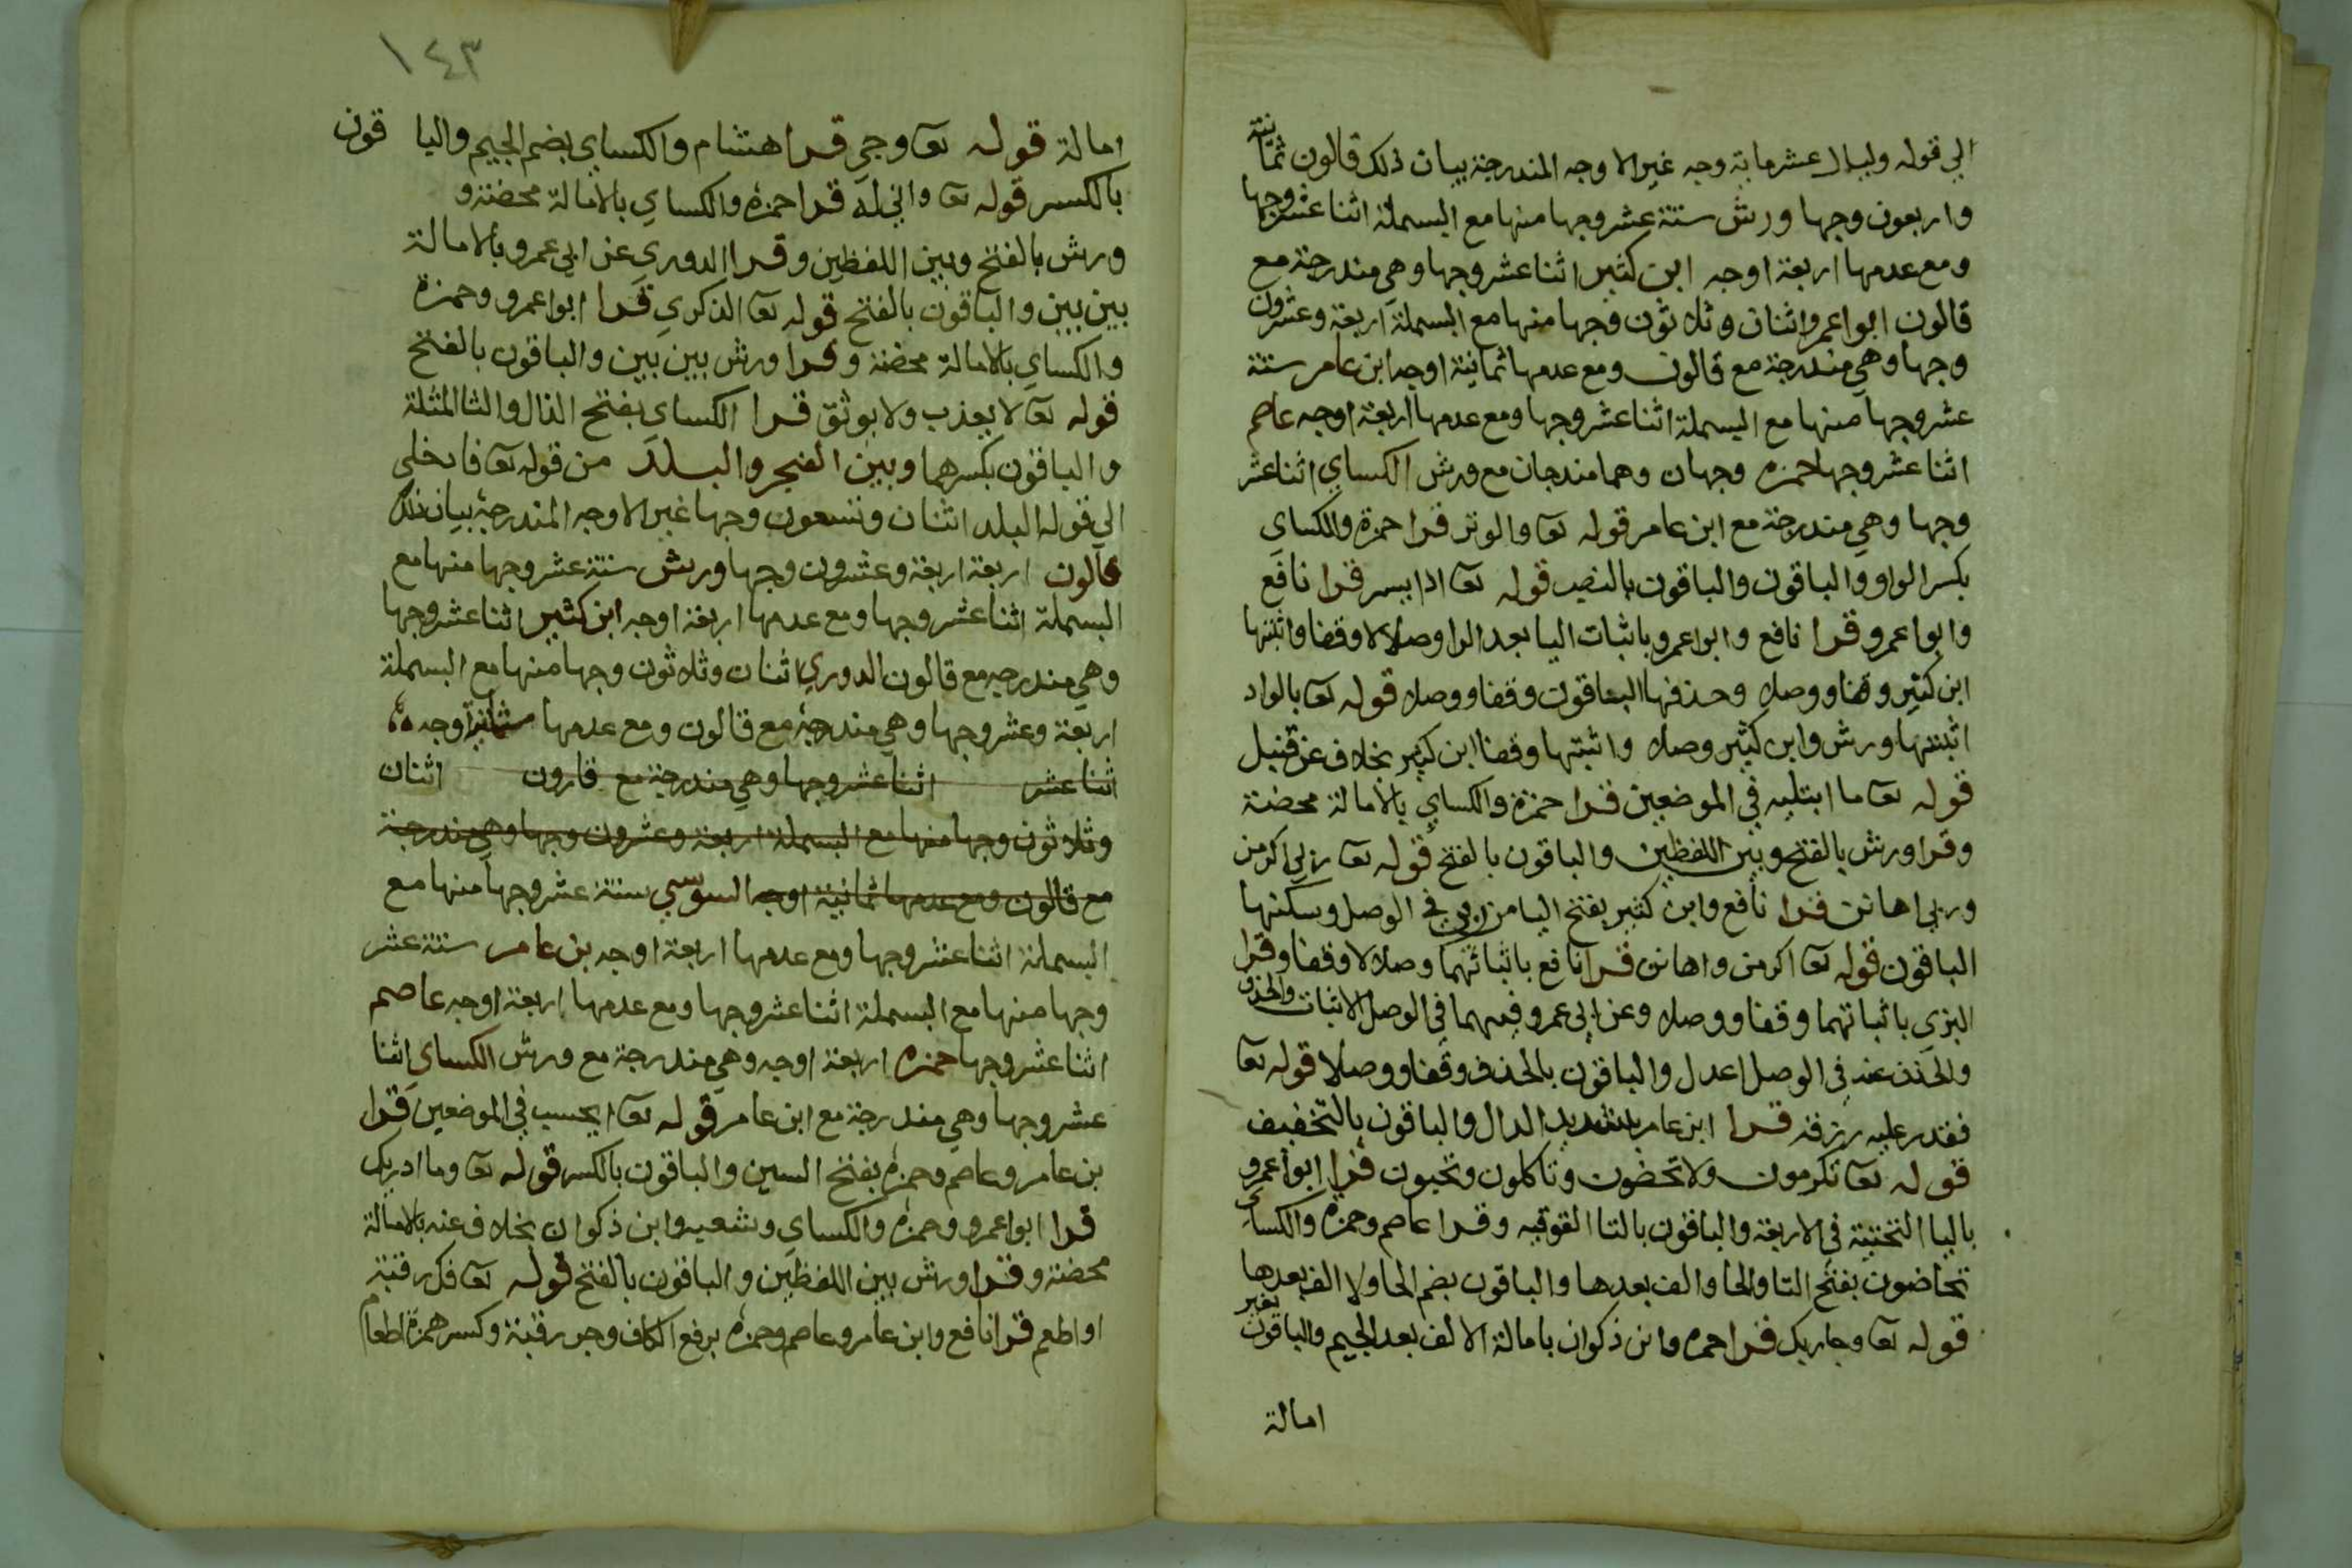 الي قوله وليال عشر ماية وجه غير الاوجه المندرجة بيان ذلك قالون ثمانية
واربعون وجها ورش ستة عشر وجها منها مع البسملة اثنا عشر وجها
ومع عدمها اربعة اوجه ابن كثير اثنا عشر وجها وهي مندرجة مع
قالون ابوا عمرو اثنان وثلاثون وجها منها مع البسملة اربعة وعشرون
وجها وهي مندرجة مع قالون ومع عدمها ثمانية اوجه ابن عامر ستة
عشر وجها منها مع البسملة اثنا عشر وجها ومع عدمها اربعة اوجه عاصم
اثنا عشر وجها حمزه وجهان وهما مندجان مع ورش الكساي اثنا عشر
وجها وهي مندرجة مع ابن عامر قوله تعا والوتر قرا حمزة والكساي
بكسر الواو والباقون والباقون بالنصب قوله تعا اذا يسر قرا نافع
وابوا عمرو قرا نافع وابوا عمرو باثبات اليا بعد الرا وصلا لا وقفا واثبتها
ابن كثير وقفا ووصلا وحذفها الباقون وقفا ووصلا قوله تعا بالواد
اثبتها ورش وابن كثير وصلا واثبتها وقفا ابن كثير بخلاف عن قنبل
قوله تعا ما ابتليه في الموضعين قرا حمزة والكساي بالامالة محضة
وقرا ورش بالفتح وبين اللفظين والباقون بالفتح قوله تعا ربي اكرمن
وربي اهانن قرا نافع وابن كثير بفتح اليا من ربي في الوصل وسكنها
الباقون قوله تعا اكرمن واهانن قرا نافع باثباتهما وصلا لا وقفا وقرا
البزي باثباتهما وقفا ووصلا وعن ابي عمرو فيهما في الوصل الاثبات والحذف
والحذف عنه في الوصل اعدل والباقون بالحذف وقفا ووصلا قوله تعا
فقدر عليه رزقه قرا ابن عامر بتشديد الدال والباقون بالتخفيف
قوله تعا تكرمون ولا تحضون وتاكلون وتحبون قرا ابوا عمرو
باليا التحتية في الاربعة والباقون بالتا الفوقيه وقرا عاصم وحمزه والكساي
تحاضون بفتح التا والحا والف بعدها والباقون بضم الحا ولا الف بعدها
قوله تعا وجاريك قرا حمزه وابن ذكوان بامالة الالف بعد الجيم والباقون بغير
امالة
١٤٣
امالة قوله تعا وجي قرا هشام والكساي بضم الجيم واليا قون
بالكسر قوله تعا واني له قرا حمزة والكساي بالامالة محضة و
ورش بالفتح وبين اللفظين وقرا الدوري عن ابي عمرو بالامالة
بين بين والباقون بالفتح قوله تعا الذكري قرا ابوا عمرو وحمزة
والكساي بالامالة محضة وقرا ورش بين بين والباقون بالفتح
قوله تعا لا يعذب ولا يوثق قرا الكساي بفتح الذال والثا المثلثة
والباقون بكسرهما وبين الفجر والبلد من قوله تعا فادخلي
الي قوله البلد اثنان وتسعون وجها غير الاوجه المندرجة بيان ذلك
قالون اربعة اربعة وعشرون وجها ورش ستة عشر وجها منها مع
البسملة اثنا عشر وجها ومع عدمها اربعة اوجه ابن كثير اثنا عشر وجها
وهي مندرجه مع قالون الدوري اثنان وثلاثون وجها منها مع البسملة
اربعة وعشر وجها وهي مندرجة مع قالون ومع عدمها ثمانية اوجه
اثنا عشر اثنا عشر وجها وهي مندرجة مع قارون اثنان
وثلاثون وجها منها مع البسملة اربعة وعشرون وجها وهي مندرجة
مع قالون ومع عدمها ثمانية اوجه السوسي ستة عشر وجها منها مع
البسملة اثنا عشر وجها ومع عدمها اربعة اوجه بن عامر ستة عشر
وجها منها مع البسملة اثنا عشر وجها ومع عدمها اربعة اوجه عاصم
اثنا عشر وجها حمزه اربعة اوجه وهي مندرجة مع ورش الكساي اثنا
عشر وجها وهي مندرجة مع ابن عامر قوله تعا ايحسب في الموضعين قرا
بن عامر وعاصم وحمزه بفتح السين والباقون بالكسر قوله تعا وما ادريك
قرا ابوا عمرو وحمزه والكساي وشعبه وابن ذكوان بخلاف عنه بالامالة
محضة وقرا ورش بين اللفظين والباقون بالفتح قوله تعا فك رقبة
او اطعم قرا نافع وابن عامر وعاصم وحمزه برفع الكاف وجر رقبة وكسر همزة اطعام